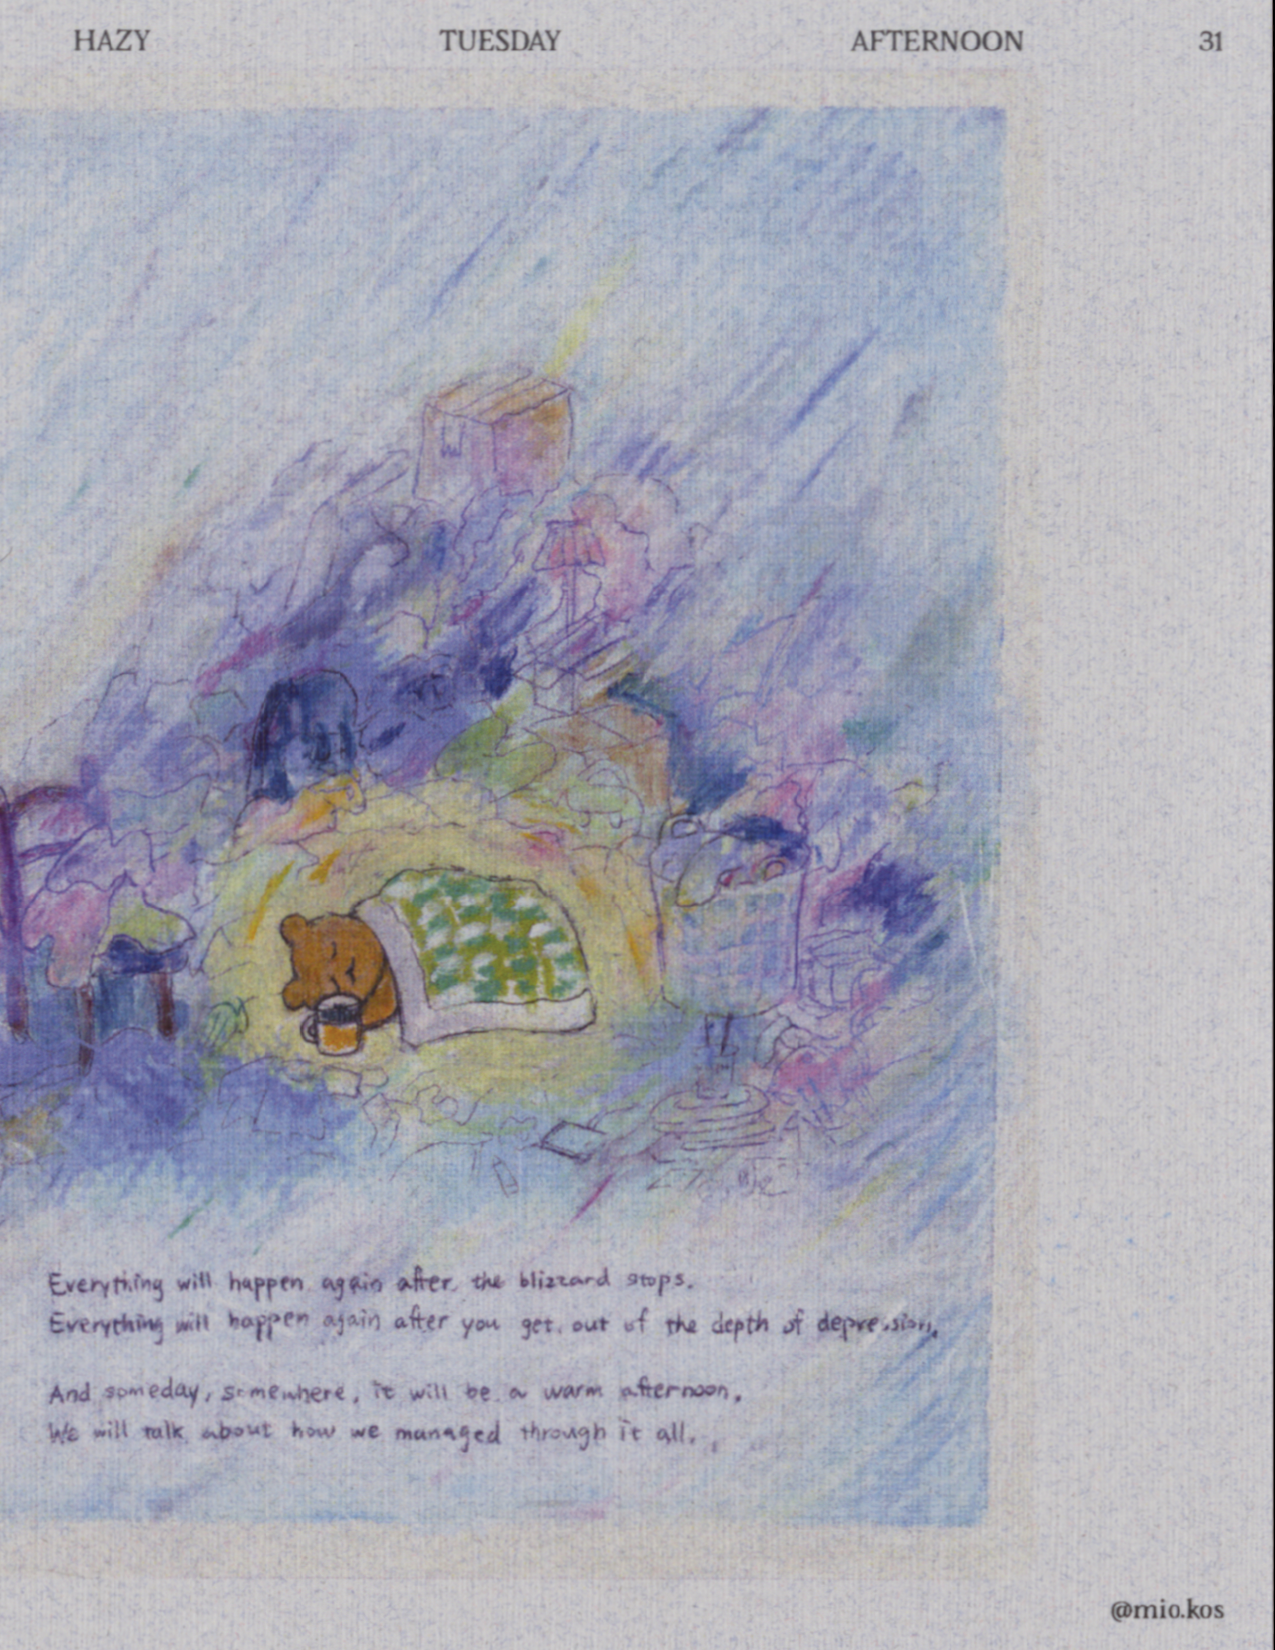 HAZY TUESDAY AFTERNOON 31
Everything will happen again after the blizzard stops.
Everything will happen again after you get out of the depth of depression.
And someday, somewhere, it will be a warm afternoon.
We will talk about how we managed through it all.
@mio.kos